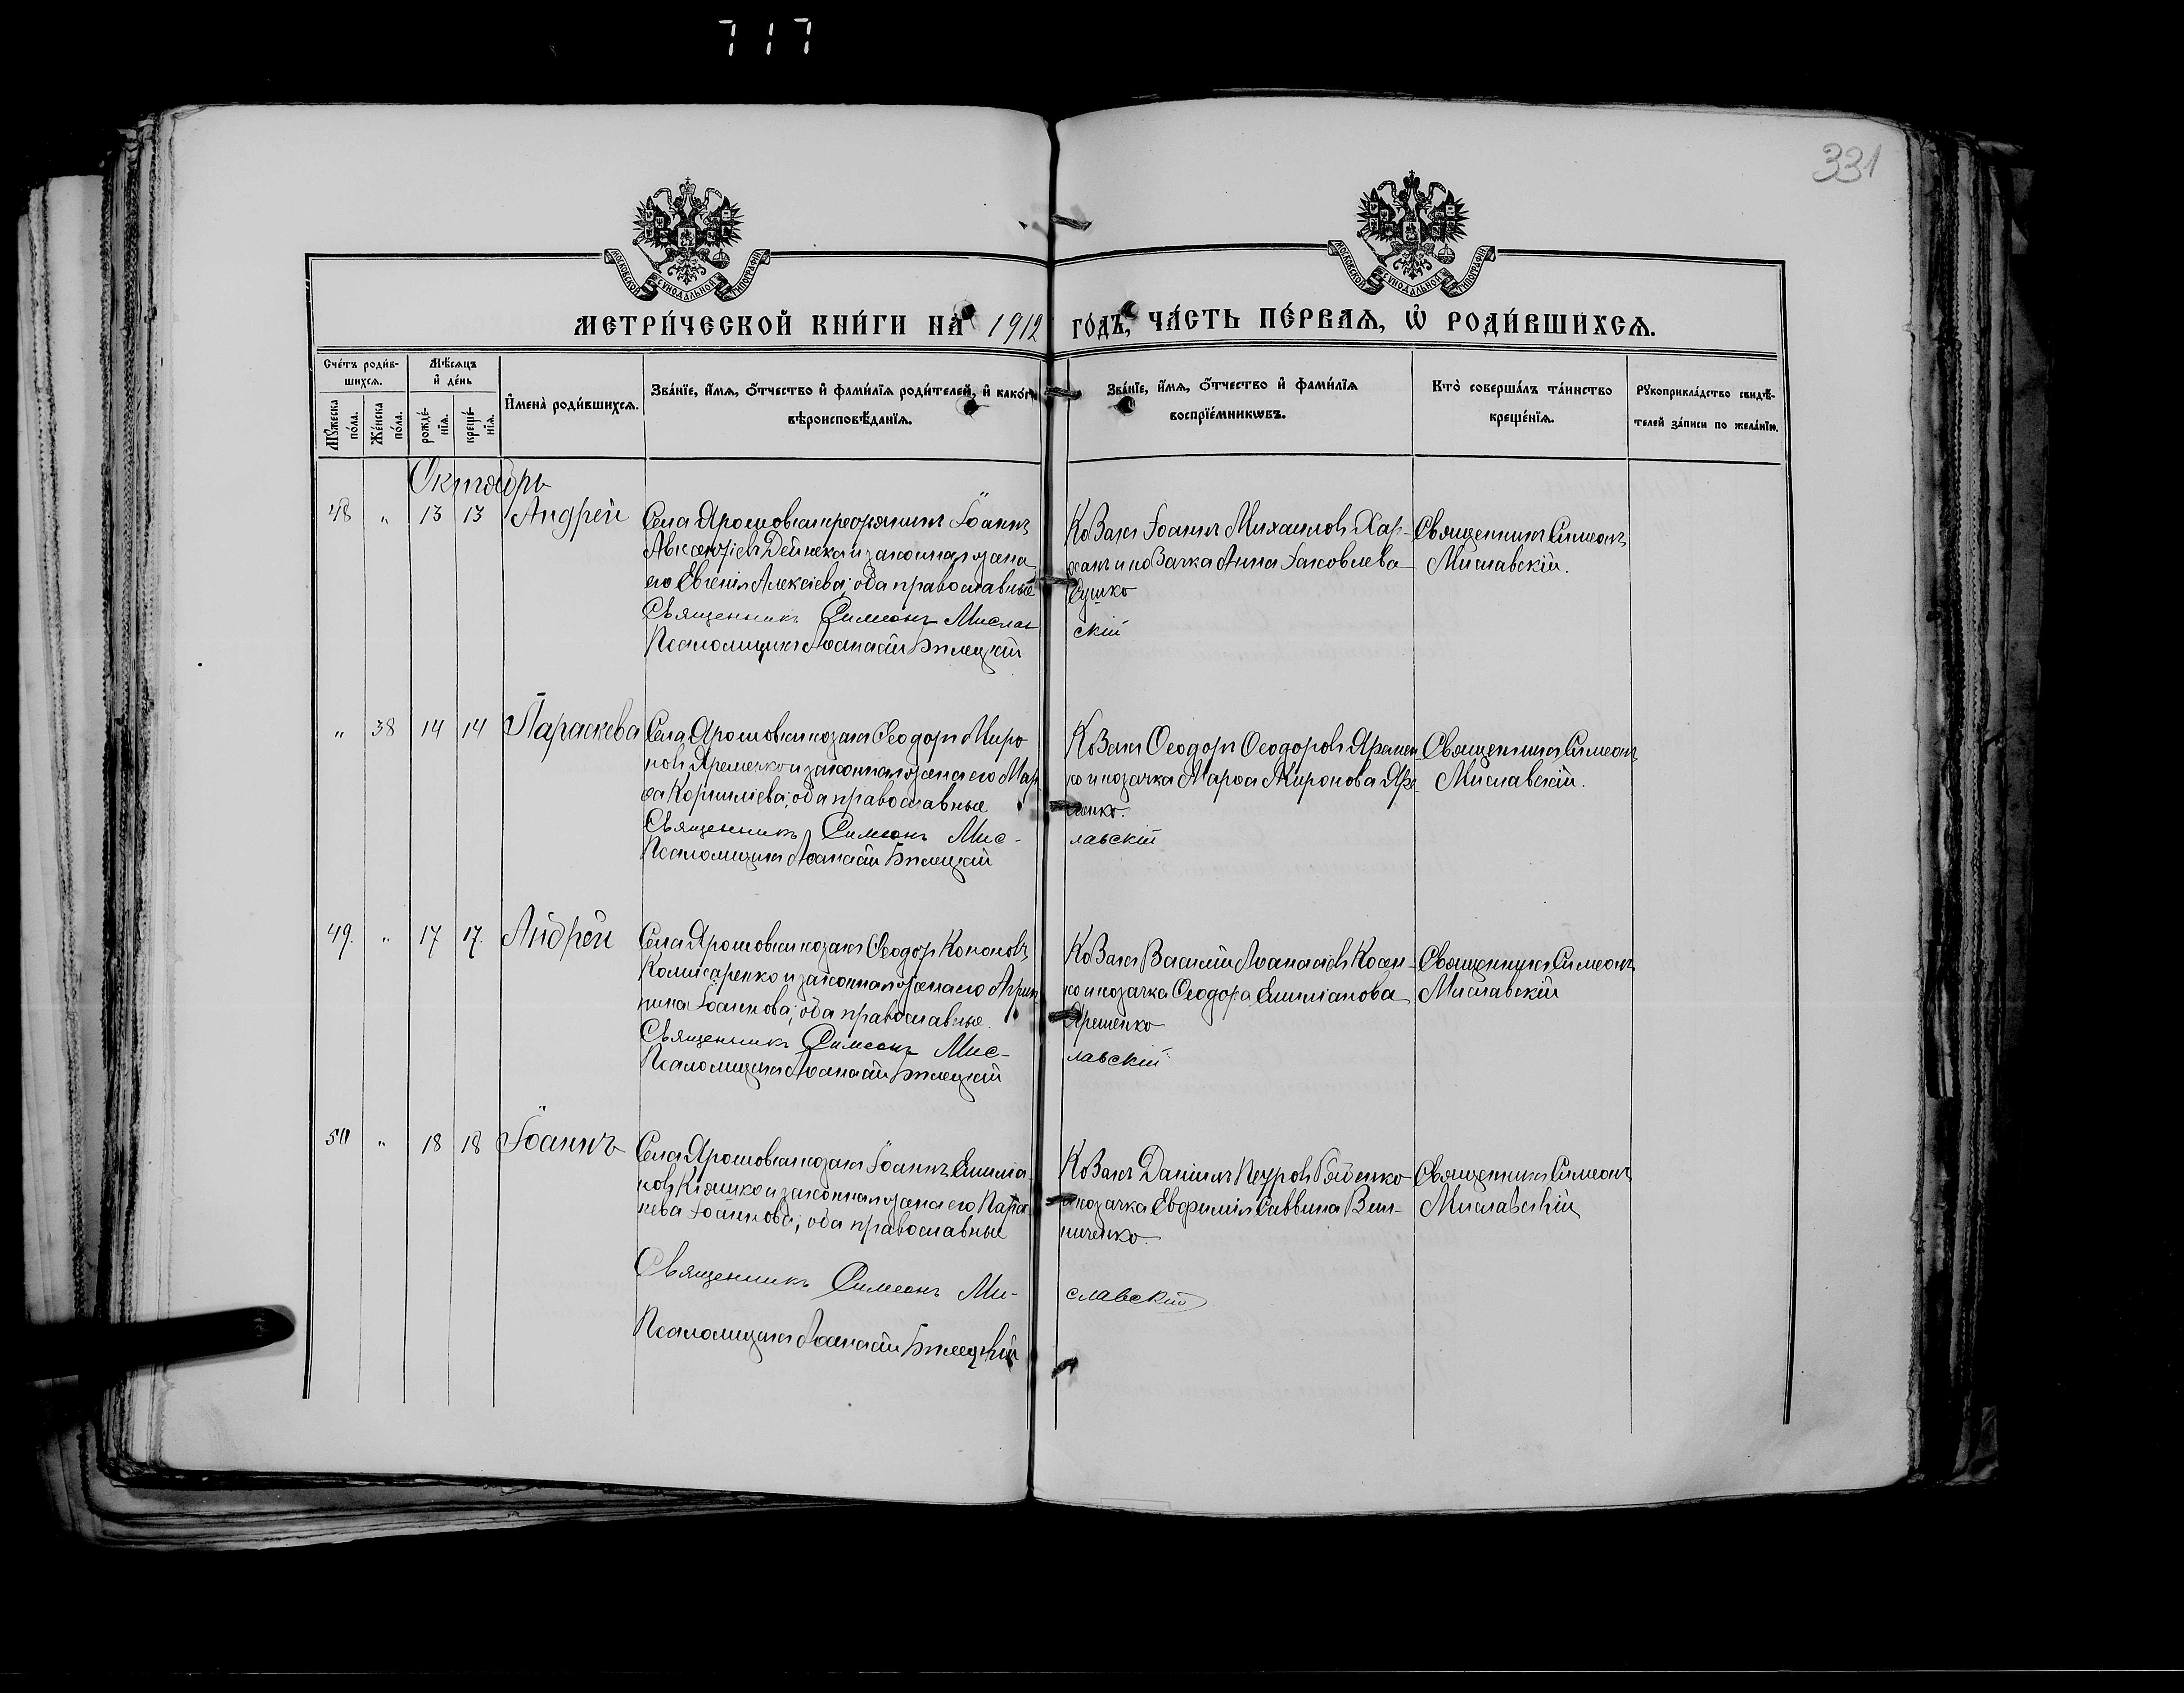 717
331
МОСКОВСКОЙ СѴНОДАЛЬНОЙ ТИПОГРАФІИ
МОСКОВСКОЙ СѴНОДАЛЬНОЙ ТИПОГРАФІИ
МЕТРИ́ЧЕСКОЙ КНИ́ГИ НА 1912 ГО́ДЪ, ЧА́СТЬ ПЕ́РВАѦ, Ѡ҆ РОДИ́ВШИХСѦ.
Сче́тъ роди́в-
шихсѧ.
Мѣ́сѧцъ
и҆ де́нь
Мꙋ́жеска
по́ла.
Же́нска
по́ла.
рожде́-
нїѧ.
креще́-
нїѧ.
И҆мена̀ роди́вшихсѧ.
Зва́нїе, и҆́мѧ, ѻ҆́тчество и҆ фами́лїѧ роди́телей, и҆ како́гѡ
вѣроисповѣ́данїѧ.
Зва́нїе, и҆́мѧ, ѻ҆́тчество и҆ фами́лїѧ
воспрїе́мникѡвъ.
Кто̀ соверша́лъ та́инство
креще́нїѧ.
Рꙋкоприкла́дство свидѣ́-
телей за́писи по жела́нїю.
Октябрь
48 " 13 13 Андрей
Села Ярошовки крестьянинъ Іоаннъ
Авксентіевъ Дейнека и законная жена
его Евгенія Алексіева; оба православные
Священникъ Симеонъ Мислав
Псаломщикъ Аѳанасій Билецкій
Козакъ Іоаннъ Михаиловъ
и козачка Анна Іаковлева
скій
Священникъ Симеонъ
Миславскій.
" 38 14 14 Параскева
Села Ярошовки козакъ Ѳеодоръ Миро
новъ Яременко и законная жена его Мар
ѳа Корниліева; оба православные
Священникъ Симеонъ Мис-
Псаломщикъ Аѳанасій Билецкій
Козакъ Ѳеодоръ Ѳеодоровъ Яремен
ко и козачка Марѳа Миронова Яре
менко.
лавскій
Священникъ Симеонъ
Миславскій.
49. " 17 17. Андрей
Села Ярошовки козакъ Ѳеодоръ Кононовъ
Комисаренко и законная жена его Агрип
пина Іоаннова; оба православные.
Священникъ Симеонъ Мис-
Псаломщикъ Аѳанасій Билецкій
Козакъ Василій Аѳанасіевъ Косен-
ко и козачка Ѳеодора Емиліанова
Яременко
лавскій
Священникъ Симеонъ
Миславскій
50 " 18 18 Іоаннъ
Села Ярошовки козакъ Іоаннъ Емилiа
новъ Кіяшко и законная жена его Парас
кева Іоаннова; оба православные
Священникъ Симеонъ Ми-
Псаломщикъ Аѳанасій Билецкій
Козакъ Даніилъ Петровъ
и козачка Евфимія Саввина Вин-
ниченко.
славскій
Священникъ Симеонъ
Миславскій